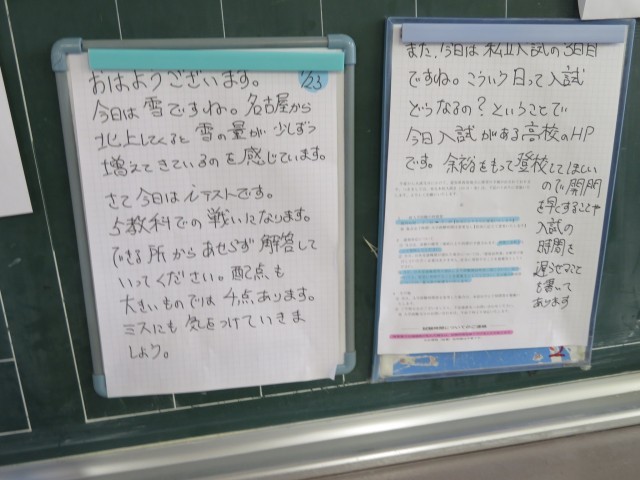 おはようございます。
1/23
今日は雪ですね。名古屋から
北上してくると雪の量が少しずつ
増えてきているのを感じています。
さて今日はiテストです。
5教科での戦いになります。
できる所からあせらず解答して
いってください。配点も
大きいものでは4点あります。
ミスにも気をつけていきま
しょう。
また、今日は私立入試の3日目
ですね。こういう日って入試
どうなるの?ということで
今日入試がある高校のHP
です。余裕をもって登校してほしい
ので開門
を早くすることや
入試の
時間を
遅らせること
を書いて
あります